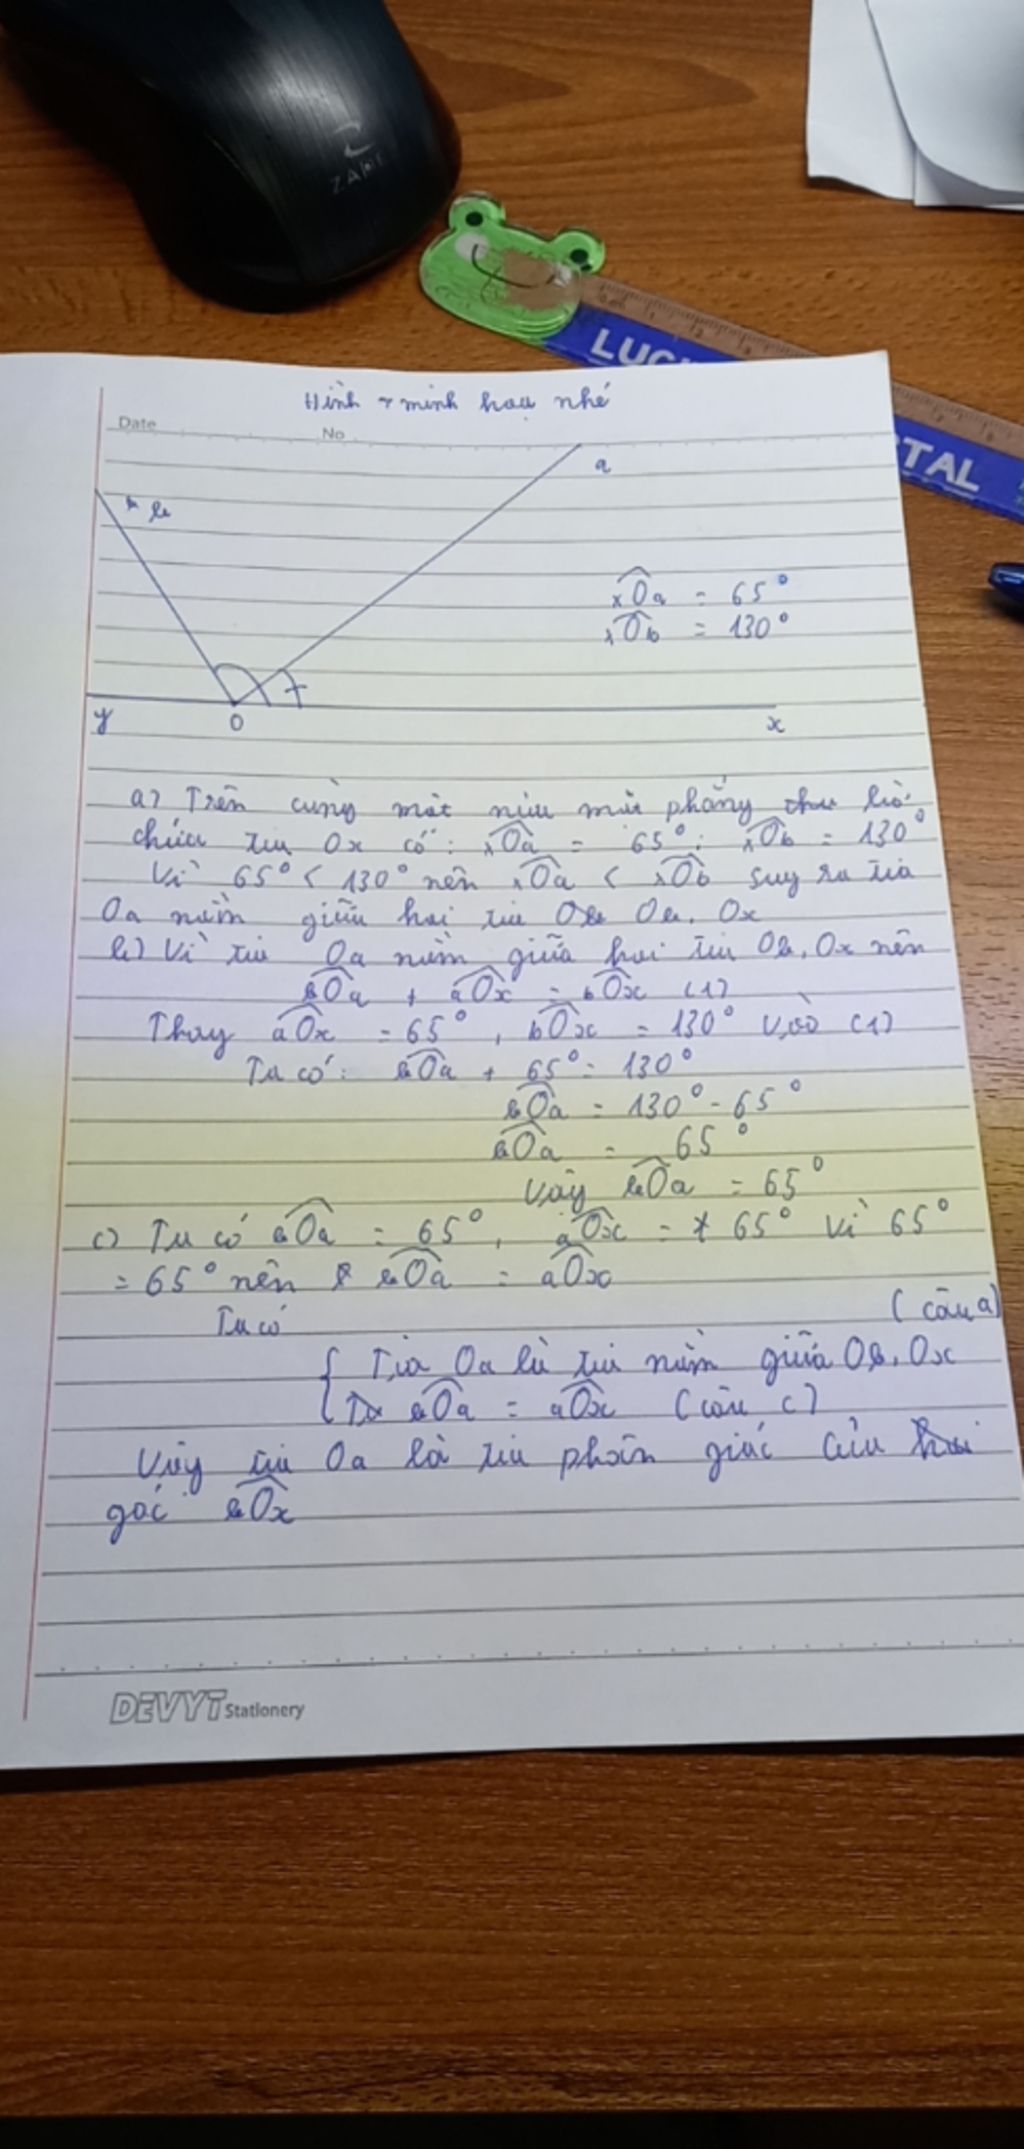 ZADEZ
LUC
TAL
Hình minh hoạ nhé
Date
No
a
b
xOa = 65°
xOb = 130°
y
O
x
a) Trên cùng một nửa mặt phẳng bờ
chứa tia Ox có: xOa = 65°; xOb = 130°
Vì 65° < 130° nên xOa < xOb suy ra tia
Oa nằm giữa hai tia Ob, Ox
b) Vì tia Oa nằm giữa hai tia Ob, Ox nên
bOa + aOx = bOx (1)
Thay aOx = 65°, bOx = 130° vào (1)
Ta có: bOa + 65° = 130°
bOa = 130° - 65°
bOa = 65°
Vậy bOa = 65°
c) Ta có bOa = 65°, aOx = 65° vì 65°
= 65° nên bOa = aOx
Ta có
(câu a)
{ Tia Oa là tia nằm giữa Ob, Ox
bOa = aOx (câu c)
Vậy tia Oa là tia phân giác của
góc bOx
DEVYT Stationery